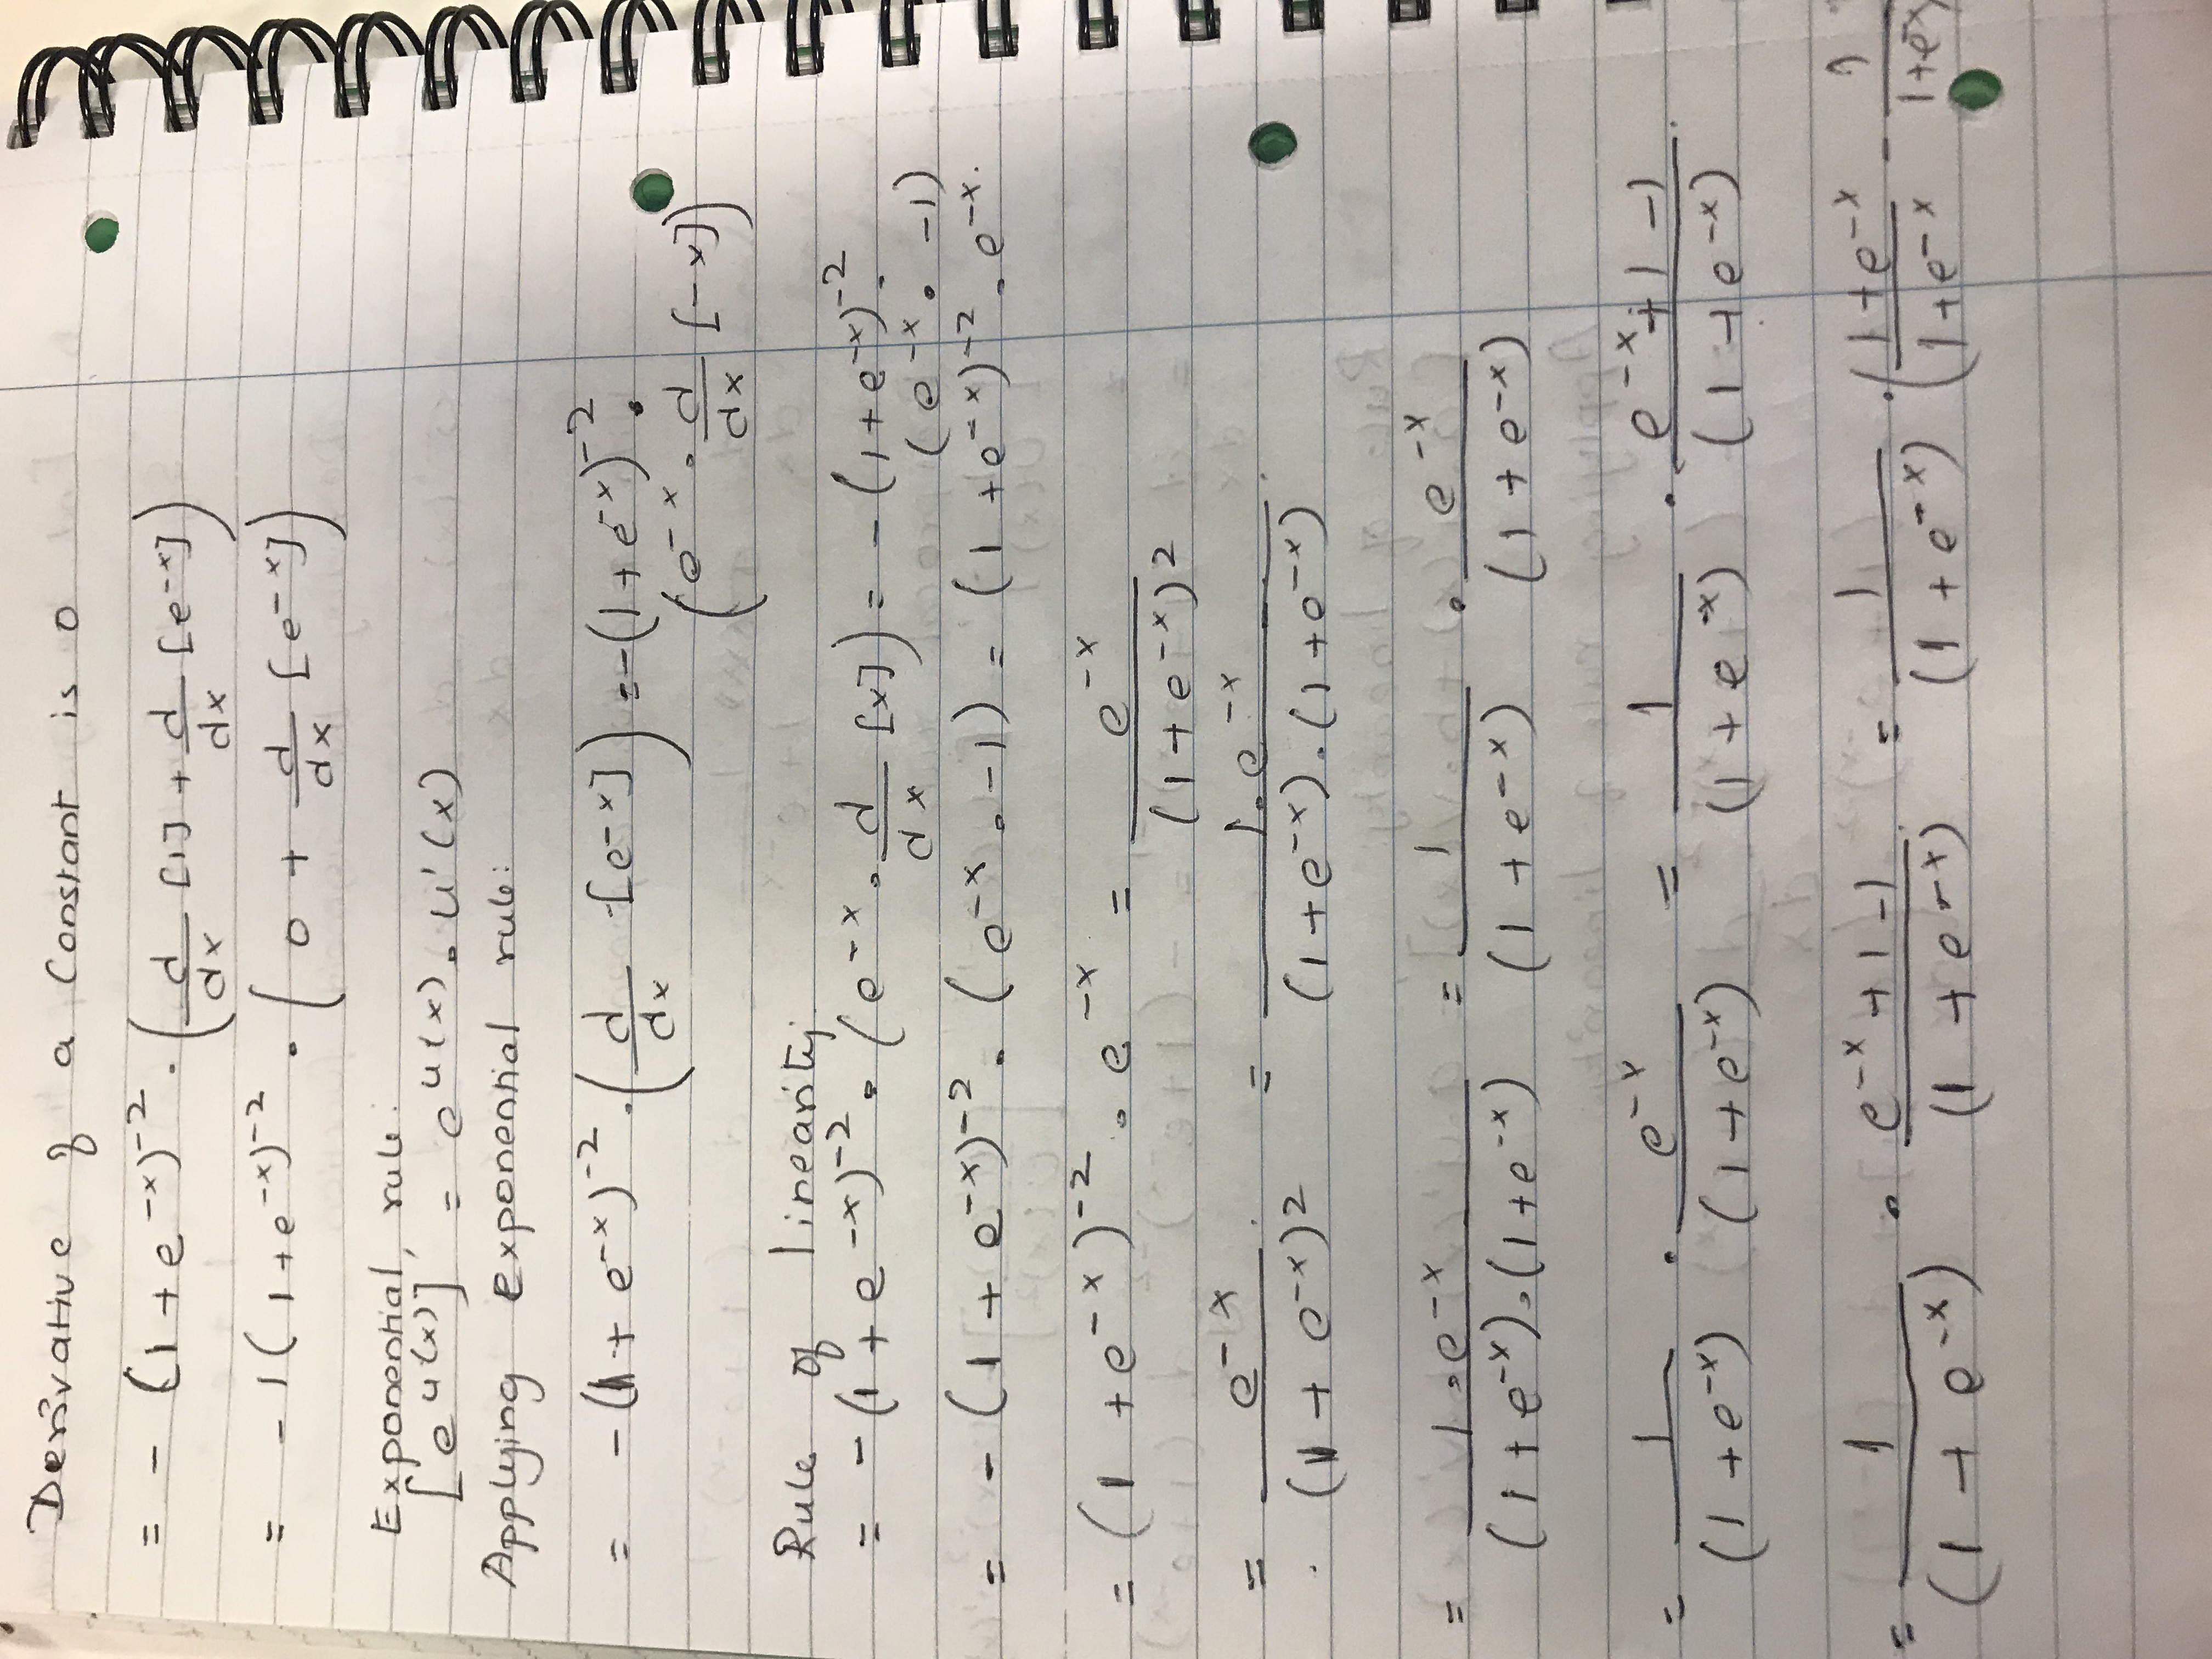 Derivative of a Constant is 0
= - (1 + e^{-x})^{-2} . (d/dx [1] + d/dx [e^{-x}])
= -1 (1 + e^{-x})^{-2} . (0 + d/dx [e^{-x}])
Exponential rule:
[e^{u(x)}] = e^{u(x)} . u'(x)
Applying exponential rule:
= -(1 + e^{-x})^{-2} . (d/dx [e^{-x}]) = -(1 + e^{-x})^{-2} .
(e^{-x} . d/dx [-x])
Rule of linearity
= -(1 + e^{-x})^{-2} . (e^{-x} . d/dx [x]) = -(1 + e^{-x})^{-2} .
(e^{-x} . -1)
= -(1 + e^{-x})^{-2} . (e^{-x} . -1) = (1 + e^{-x})^{-2} . e^{-x}.
= (1 + e^{-x})^{-2} . e^{-x} = e^{-x} / (1 + e^{-x})^2
= e^{-x} / (1 + e^{-x})^2 = 1 . e^{-x} / (1 + e^{-x}) . (1 + e^{-x})
= 1 . e^{-x} / (1 + e^{-x}) . (1 + e^{-x}) = 1 / (1 + e^{-x}) . e^{-x} / (1 + e^{-x})
= 1 / (1 + e^{-x}) . e^{-x} / (1 + e^{-x}) = 1 / (1 + e^{-x}) . e^{-x} + 1 - 1 / (1 + e^{-x})
= 1 / (1 + e^{-x}) . e^{-x} + 1 - 1 / (1 + e^{-x}) = 1 / (1 + e^{-x}) . (1 + e^{-x} / 1 + e^{-x} - 1 / 1 + e^{-x})